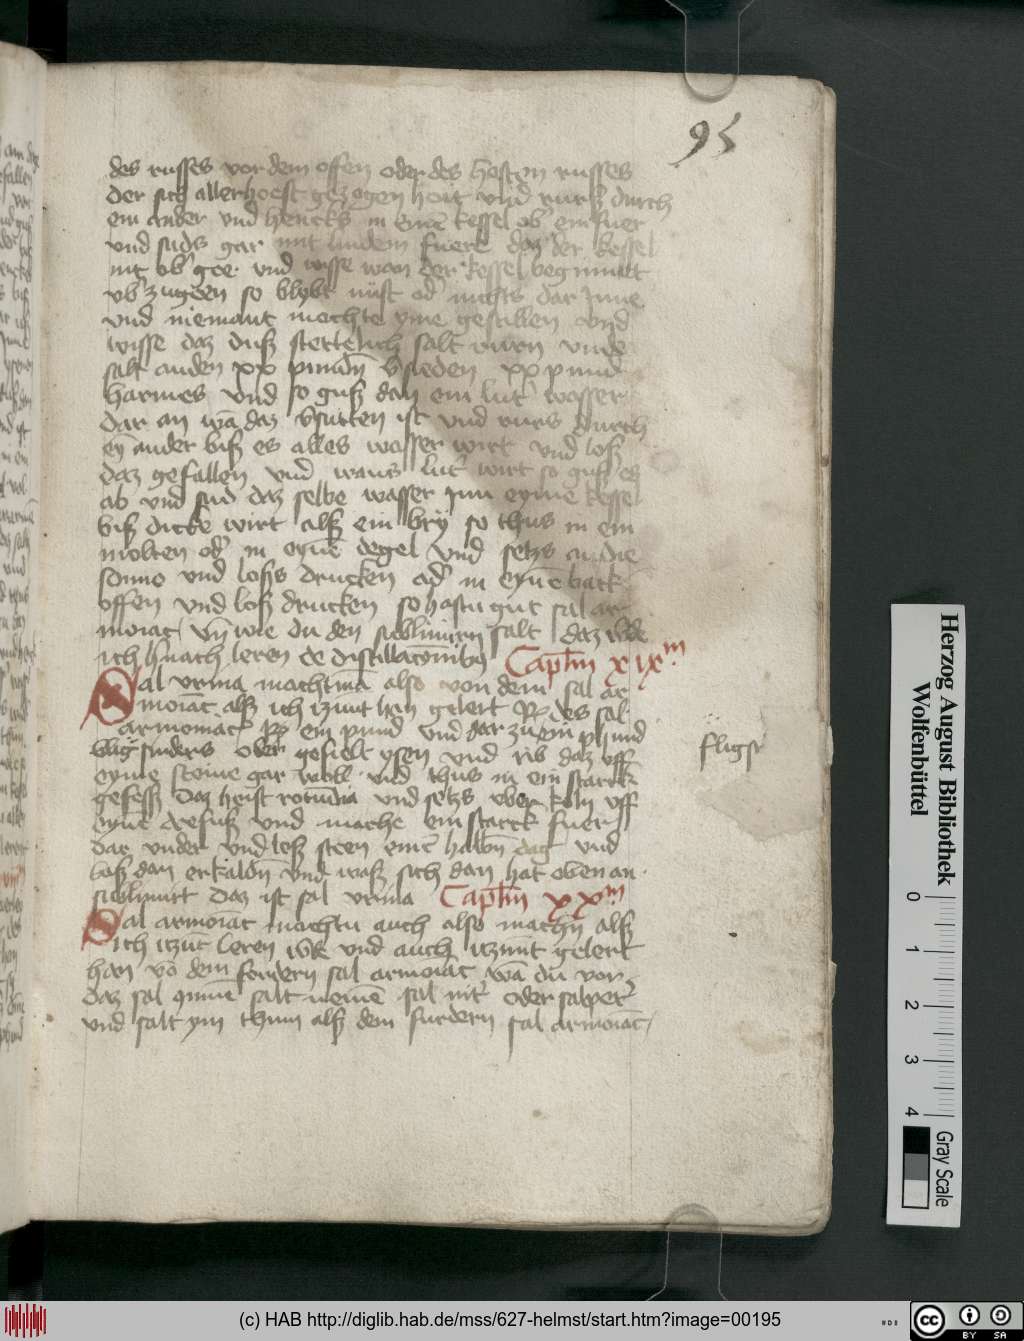 95
des russes vor dem offen oder des hosten russes
der sich allerhoest gezogen hait vnd rurß durch
ein ander vnd hencks in eine kessel ob ein fuer
vnd suds gar mit lindem fuere daz der kessel
nit ob gee vnd wisse wan der kessel beginnet
vb zugeen so blybt nust od nichts dar Inne
vnd niemant mochte yme gestillen vnd
wisse daz duß stettelich salt rurn vnde
salt anden xx pundn vsieden xx pund
harmes vnd so guß dan ein luter wasser
dar an wā daz vsutten ist vnd rurs durch
ey ander biß es alles wasser wirt vnd loß
daz gefallen vnd wans luter wirt so guß es
ab vnd sud daz selbe wasser Inn eyme kessel
biß dicke wirt alß ein bry so thus in ein
molten od in eyne degel vnd setzs an die
sonne vnd loßs drucken ad in eyne back
offen vnd loß drucken so hastu gut sal ar
moiac vn wie du den sublimirn salt daz
ich hnach leren de distillacōnibus Captm xixm
Sal vrina machtma also von dem sal ar
moiac alß ich itzunt hen gelert Rp des sal
armoniac Rp ein pund vnd dar zu ein phund
sinders oder gefielt ysen vnd rib daz vff
eyme steine gar woll vnd thus in ein starck
gefeß daz heist rotunda vnd setzs vber koln vff
eyne drefuß vnd mache ein starck fuer
dar vnder vnd leß steen eine halbn dag vnd
loß dan erkaldn vnd waß sich dan hat oben an
sublimirt daz ist sal vrina Captm xxm
Sal armoiac machtu auch also machn alß
ich itzūt leren vnd auch itzunt gelerit
han vō dem fordern sal armoiac wā du vor
daz sal gmme salt nemē sal nitr oder salpeter
vnd salt ym thun alß dem furdern sal armoiac
fligst
Herzog August Bibliothek
Wolfenbüttel
0 1 2 3 4
Gray Scale
(c) HAB http://diglib.hab.de/mss/627-helmst/start.htm?image=00195
CC BY SA